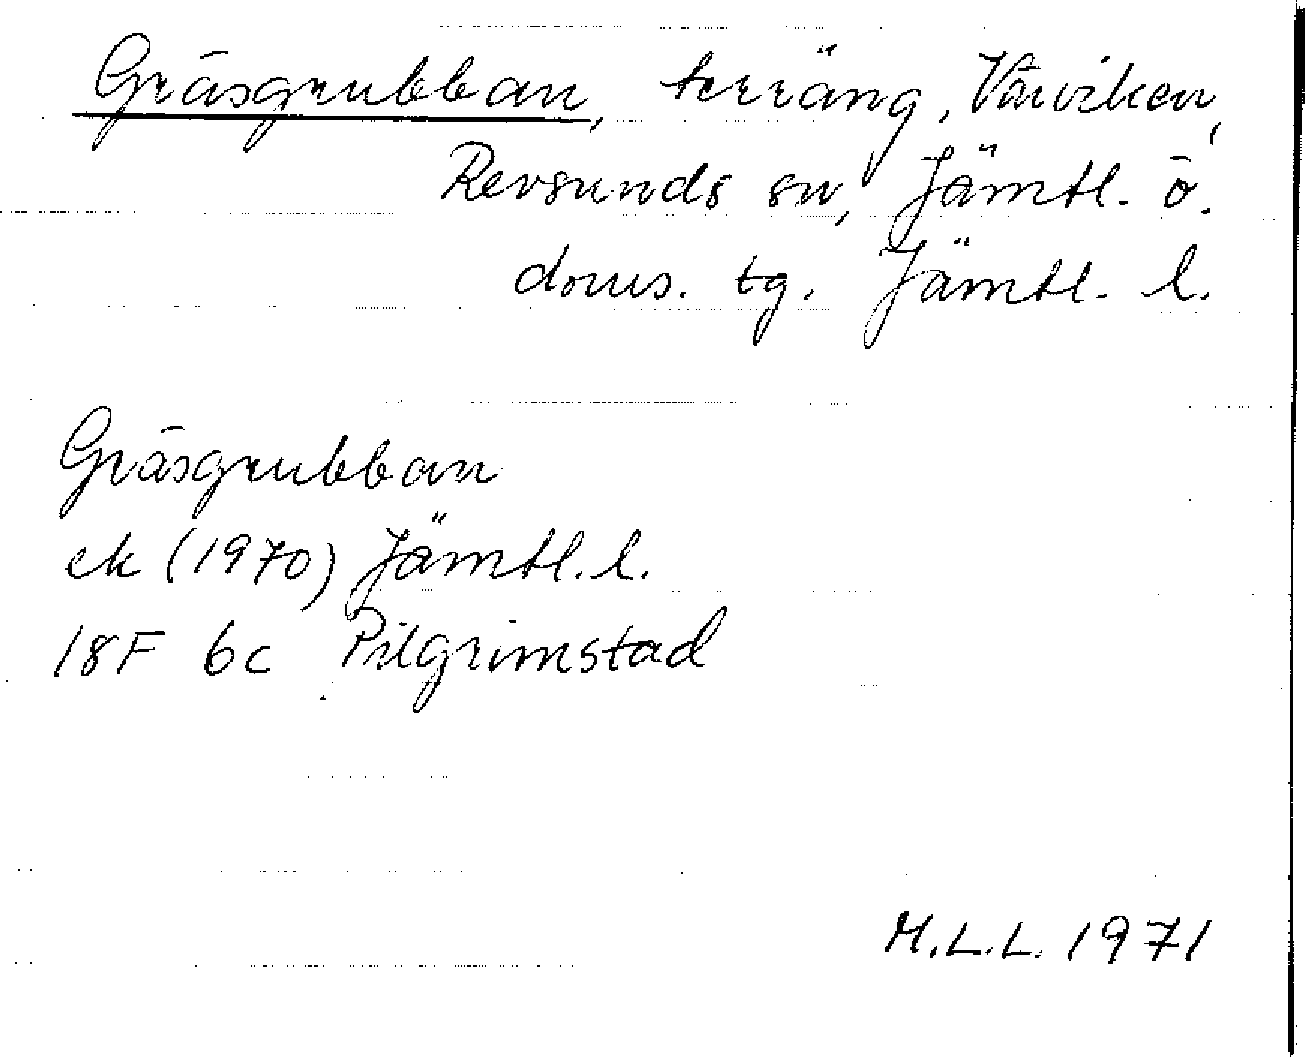 Gräsgrubban, terräng, Våviken,
Revsunds sn, Jämtl. ö.
doms. tg. Jämtl. l.
Gräsgrubban
ek (1970) Jämtl. l.
18F 6c Pilgrimstad
M.L.L. 1971